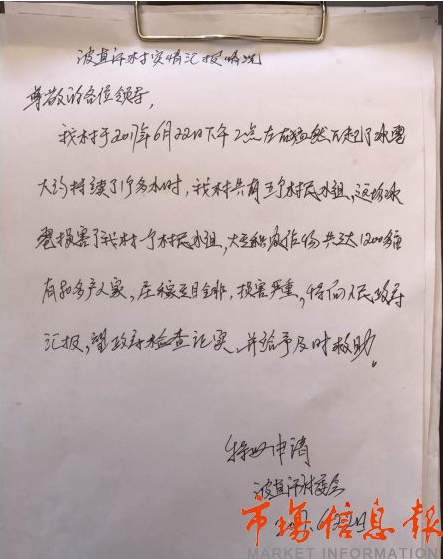 波直汗村灾情汇报情况
尊敬的各位领导,
我村于2017年6月22日下午2点左右猛然下起了冰雹
大约持续了1个多小时,我村共有三个村民小组,这场冰
雹损害了我村一个村民小组,大面积农作物共达1200多亩
有80多户人家,庄稼面目全非,损害严重,特向人民政府
汇报,望政府检查证实,并给予及时救助。
特此申请
波直汗村委会
市场信息报
MARKET INFORMATION